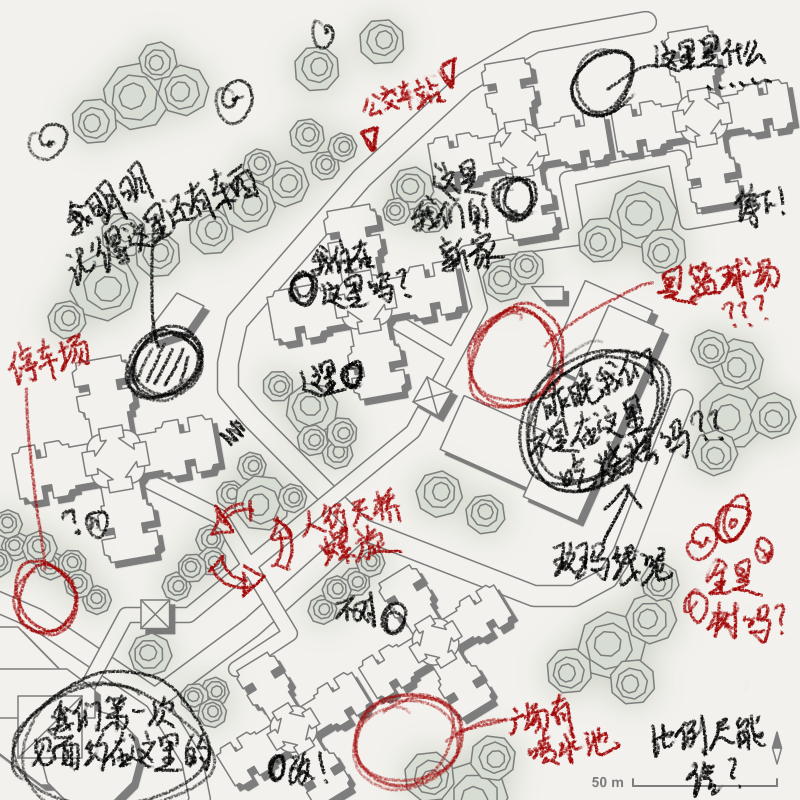 这里是什么
……
公交车站
我明明
记得这里还有车的
这里
我们的
新家
等下!
我住在
这里吗?
是篮球场
???
停车场
这里
昨晚我们
不是在这里
吃 吗??
?
人行天桥
螺旋
斑马线呢
全是
树吗?
不对
我们第一次
见面约在这里的
广场有
喷水池
啊!
比例尺能
信?
50 m